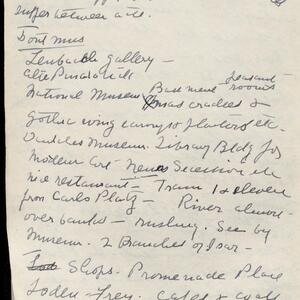 supper between acts.
Dont miss
Lenbach gallery -
alte Pinakotek
National Museum Basement peasant rooms
Xmas craches &
Gothic wing carvings plasters etc.
Deutches Museum. Library Bldg for
modern art - Secession etc
nice restaurant - Tram 1 & eleven
from Carls Platz - River almost
over banks - rushing. See by
Museum. 2 Branches of Isar -
Shops. Promenade Place
Loden Frey. capes & coats